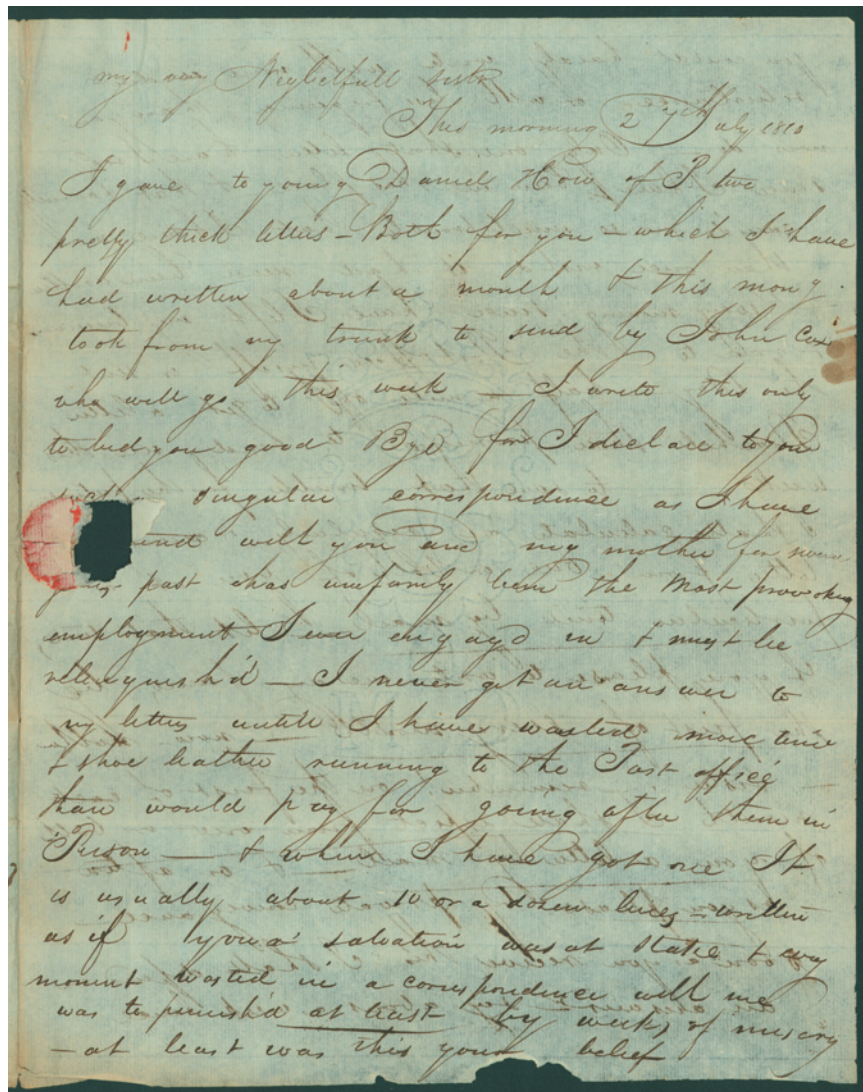 my very Neglectfull sister
This morning 27th July 1810
I gave to young Daniel How of P two
pretty thick letters - Both for you - which I have
had written about a month & this morng.
took from my trunk to send by John Cox
who will go this week - I write this only
to bid you good Bye for I declare to you
singular correspondence as I have
with you and my mother for
past has uniformly been the most provoking
employment I ever engag'd in & must be
relinquish'd - I never get an answer to
my letters untill I have wasted more time
& shoe leather running to the Post office
than would pay for going after them in
Person - & when I have got one It
is usually about 10 or a dozen lines - written
as if your salvation was at stake & every
moment wasted in a correspondence with me
was to punish'd at least by weeks of misery
- at least was this your belief